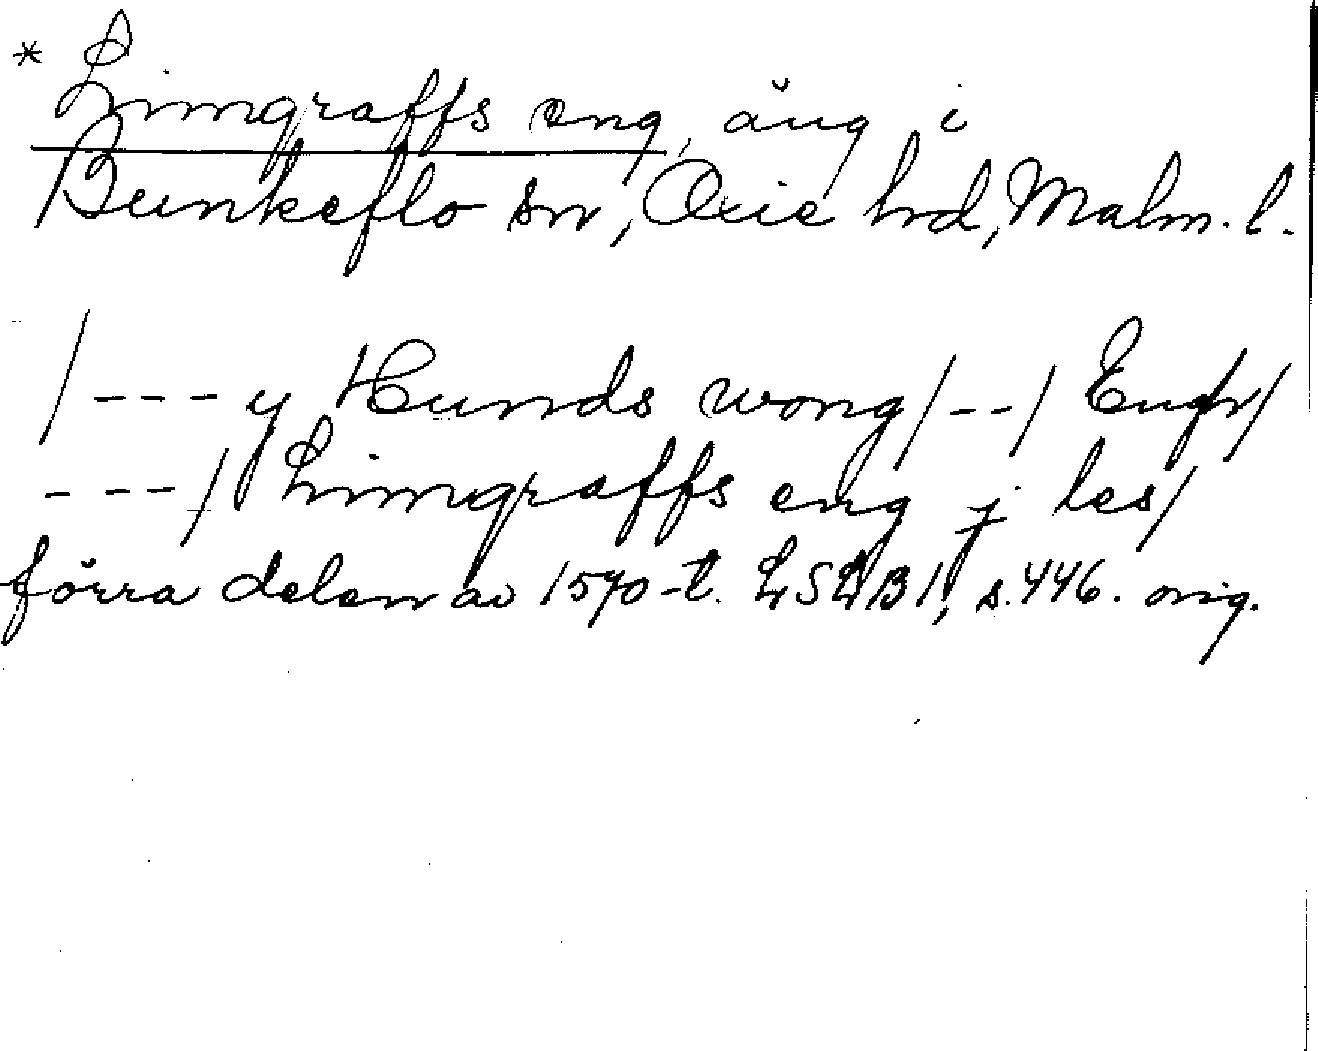 * Limgraffs eng, äng i
Bunkeflo sn, Oxie hrd, Malm. l.
/---y Hunds wong/--/ Engh/
---/ Limgraffs eng j les/
förra delen av 1570-t. LSLB I, s. 446. orig.